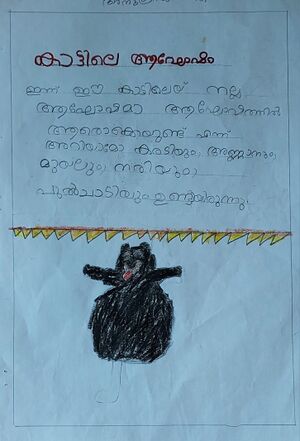 കാട്ടിലെ ആഘോഷം
ഇന്ന് ഈ കാട്ടിലെയ് നല്ല
ആഘോഷമാ ആഘോഷത്തിൽ
ആരൊക്കെയുണ്ട് എന്ന്
അറിയാമോ കരടിയും, അണ്ണാനും,
മുയലും, നരിയും,
പുൽചാടിയും ഉണ്ടയിരുന്നു.